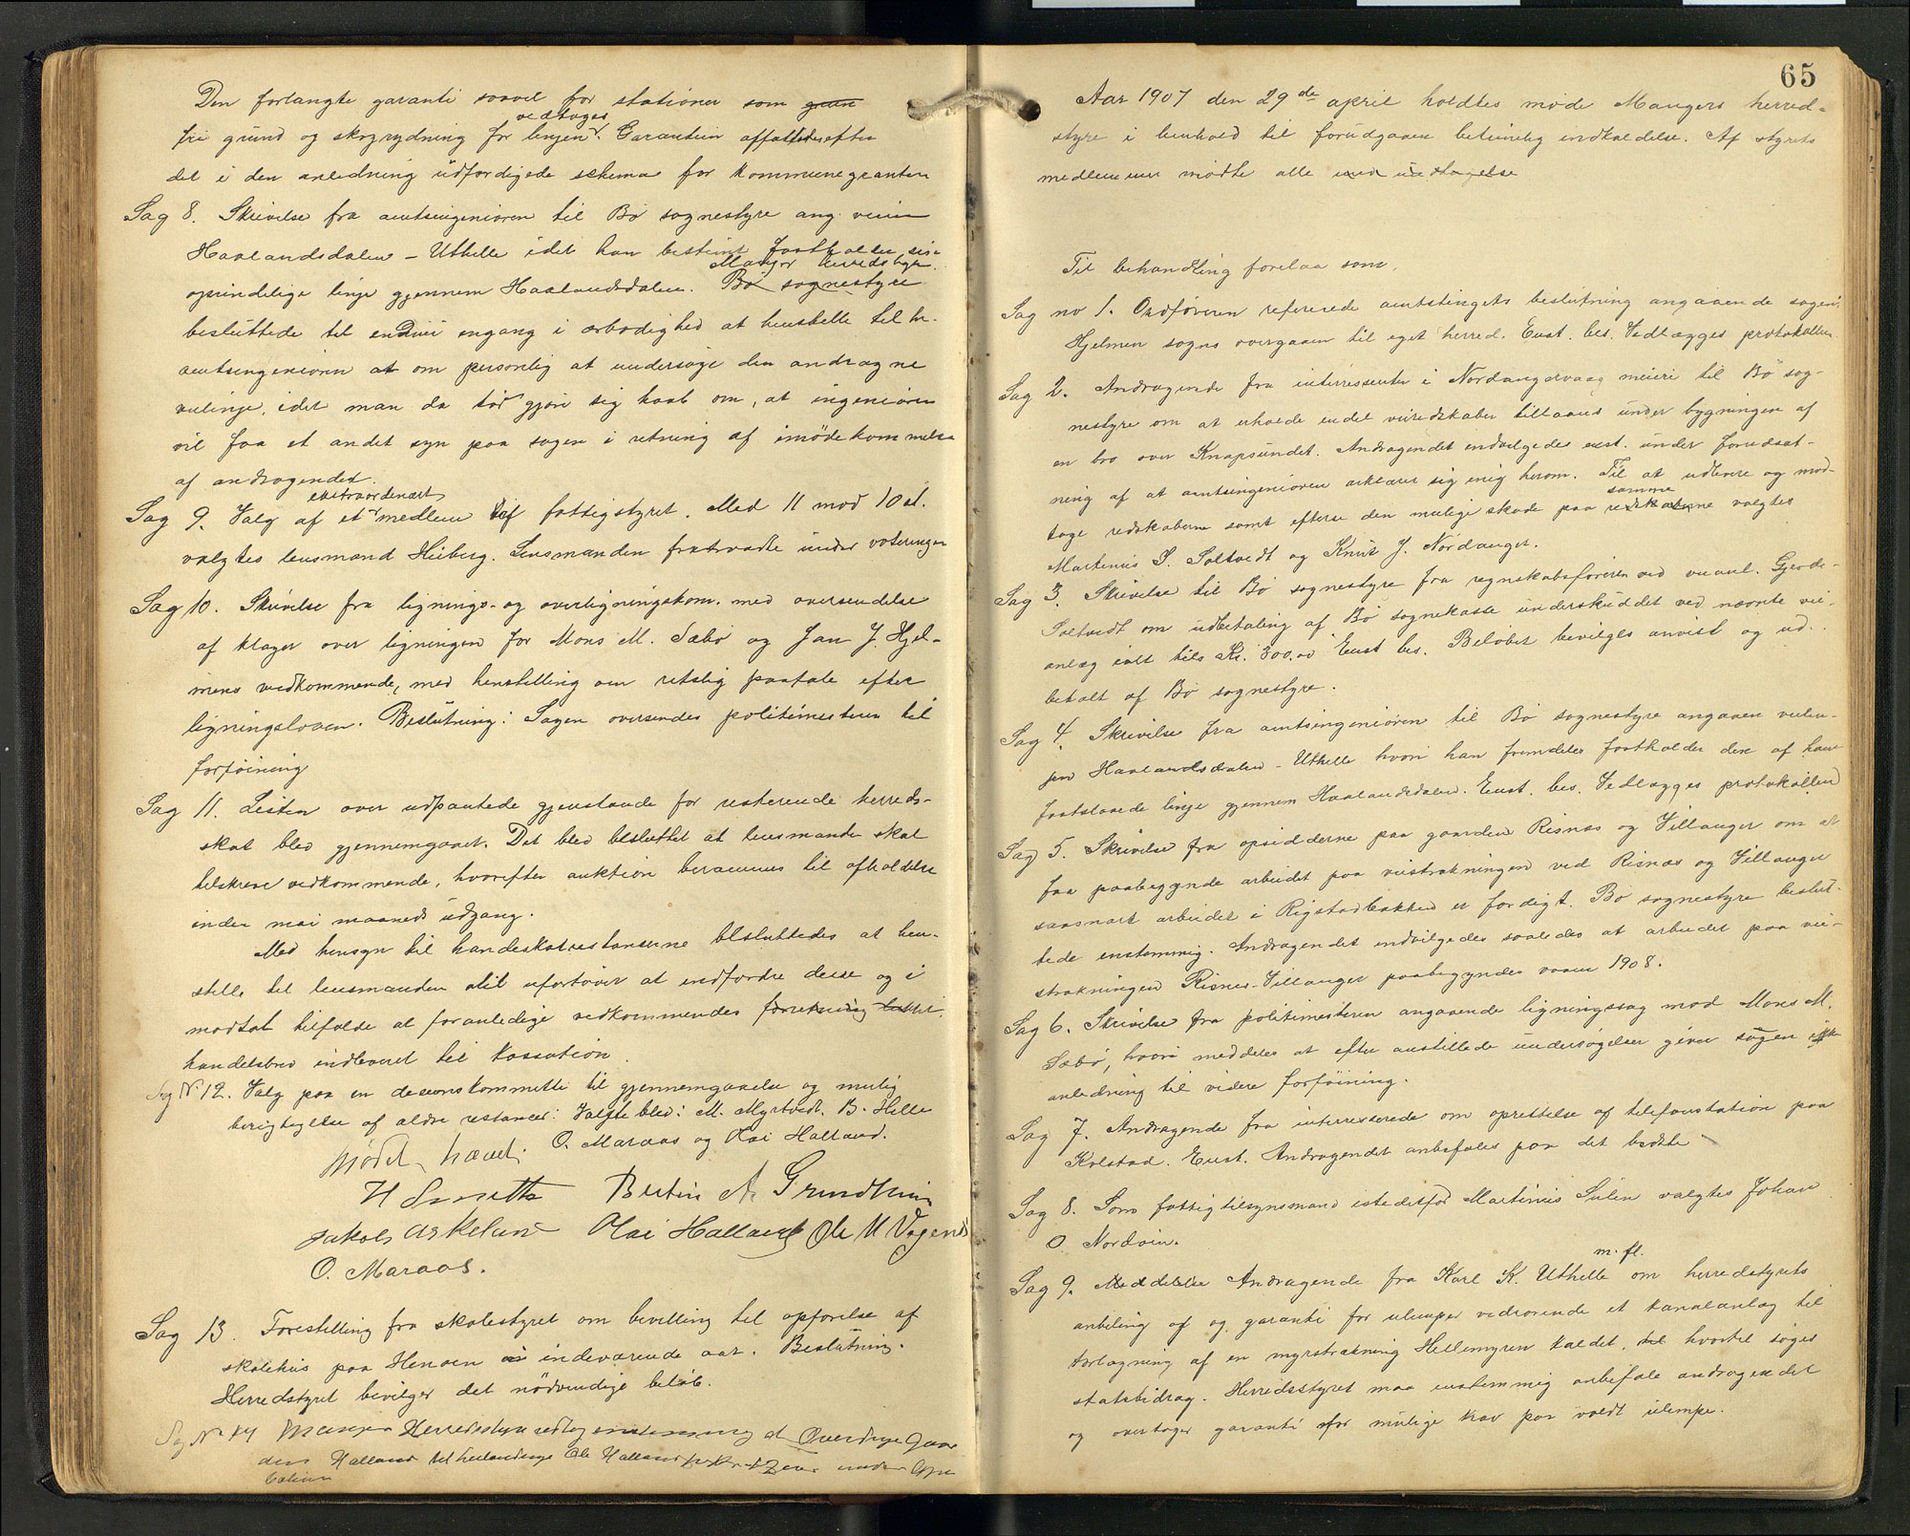 Den forlangte garanti saavel for stationer som grûn
vedtoges
fri grund og skogrydning for linjen. Garantien affattedes efter
det i den anledning udfærdigede schema for kommunegranten
Sag 8. Skrivelse fra amtsingeniøren til Bø sognestyre ang. veien
Haalandsdalen - Uthelle idet han bestemt fastholder sin
Manger herredstyre
oprindelige linje gjennem Haalandsdalen. Bø sognestyre
besluttede til end engang i ærbødighed at henstille til hr.
amtsingeniøren at om personlig at undersøge den andragne
veilinje, idet man da tør gjøre sig haab om, at ingeniøren
vil faa et andet syn paa sagen i retning af imødekommelse
af andragendet.
ekstraordenært
Sag 9. Valg af et medlem af fattigstyret. Med 11 mod 10 st.
valgtes lensmand Heiberg. Lensmanden fratraadte under voteringen
Sag 10. Skrivelse fra lignings- og overligningskom. med oversendelse
af klager over ligningen for Mons M. Sæbø og Jan J. Hjel-
mens vedkommende, med henstilling om retslig paatale efter
ligningsloven. Beslutning: Sagen oversendes politimesteren til
forføining
Sag 11. Listen over udpantede gjenstande for resterende herreds-
skat blev gjennemgaaet. Det blev besluttet at lensmanden skal
tilskrive vedkommende, hvorefter auktion berammes til afholdelse
inden mai maaneds udgang.
Med hensyn til handelskatrestanserne besluttedes at hen-
stille til lensmanden at ufortøvet at indfordre disse og i
modsat tilfælde at foranledige vedkommendes forretning lukket.
handelsbrev indleveret til kassation.
Sag No 12. Valg paa en decisionskommitte til gjennemgaaelse og mulig
berigtigelse af ældre restancer: Valgte blev: M. Myrtvedt, B. Helle
O. Maraas og Olai Halland.
Mødet hævet.
H Smith Bertin A. Grundtvin
Jakob Askeland Olai Halland Ole M Vagenes
O. Maraas.
Sag 13. Forestilling fra skolestyret om bevilling til opførelse af
skolehus paa Henøen i indeværende aar. Beslutning.
Herredstyret bevilger det nødvendige beløb.
Sag No 14 Manger Herredsstyre vedtog enstemmig at Overdrage Gaar
den Halland til Ole Halland
65
Aar 1907 den 29de april holdtes møde Mangers herred-
styre i henhold til forudgaaen betimelig indkaldelse. Af styrets
medlemmer mødte alle med undtagelse
Til behandling forelaa som.
Sag no 1. Ordføreren refererede amtstingets beslutning angaaende sagen:
Hjelmen sogns overgaaen til eget herred. Enst. bes. Vedlægges protokollen
Sag 2. Andragende fra interressenter i Nordangervaag meieri til Bø sog-
nestyre om at erholde endel veiredskaber tillaans under bygningen af
en bro over Knapsundet. Andragendet indvilgedes enst. under forudsæt-
ning af at amtsingeniøren erklærer sig enig herom. Til at udlevere og mod-
samme
tage redskaberne samt efterse den mulige skade paa redskaberne valgtes
Martinus S. Soltvedt og Knut J. Nordanger.
Sag 3. Skrivelse til Bø sognestyre fra regnskabsføreren ved veianl. Gjerde-
Soltvedt om udbetaling af Bø sognekasse underskuddet ved nævnte vei-
anlæg ialt tils Kr. 300.00 Enst bes. Beløbet bevilges anvist og ud-
betalt af Bø sognestyre.
Sag 4. Skrivelse fra amtsingeniøren til Bø sognestyre angaaen veien
paa Haalandsdalen - Uthelle hvori han fremdeles fastholder den af ham
fastslaaede linje gjennem Haalandsdalen. Enst. bes. Vedlægges protokollen
Sag 5. Skrivelse fra opsidderne paa gaarden Risnes og Villanger om at
faa paabegynde arbeidet paa veistrækningen ved Risnes og Villanger
saasnart arbeidet i Rigstadbakken er færdigt. Bø sognestyre beslut-
tede enstemmig. Andragendet indvilgedes saaledes at arbeidet paa vei-
strækningen Risnes-Villanger paabegyndes vaaren 1908.
Sag 6. Skrivelse fra politimesteren angaaende ligningssag mod Mons M.
Sæbø, hvori meddeles at efter anstillede undersøgelser giver sagen ikke
anledning til videre forføining.
Sag 7. Andragende fra interresserede om oprettelse af telefonstation paa
Kolstad. Enst. Andragendet anbefales paa det bedste
Sag 8. Som fattigtilsynsmand istedetfor Martinus Sulen valgtes Johan
O. Nordvin.
m. fl.
Sag 9. Meddelelse Andragende fra Karl K. Uthelle om herredstyrets
anbefaling af og garanti for ulemper vedrørende et kanalanlæg til
tørlægning af en myrstrækning Hellemyren kaldet, til hvortil søges
statsbidrag. Herredsstyret maa enstemmig anbefale andragendet
og overtager garanti for mulige krav paa voldt ulempe.